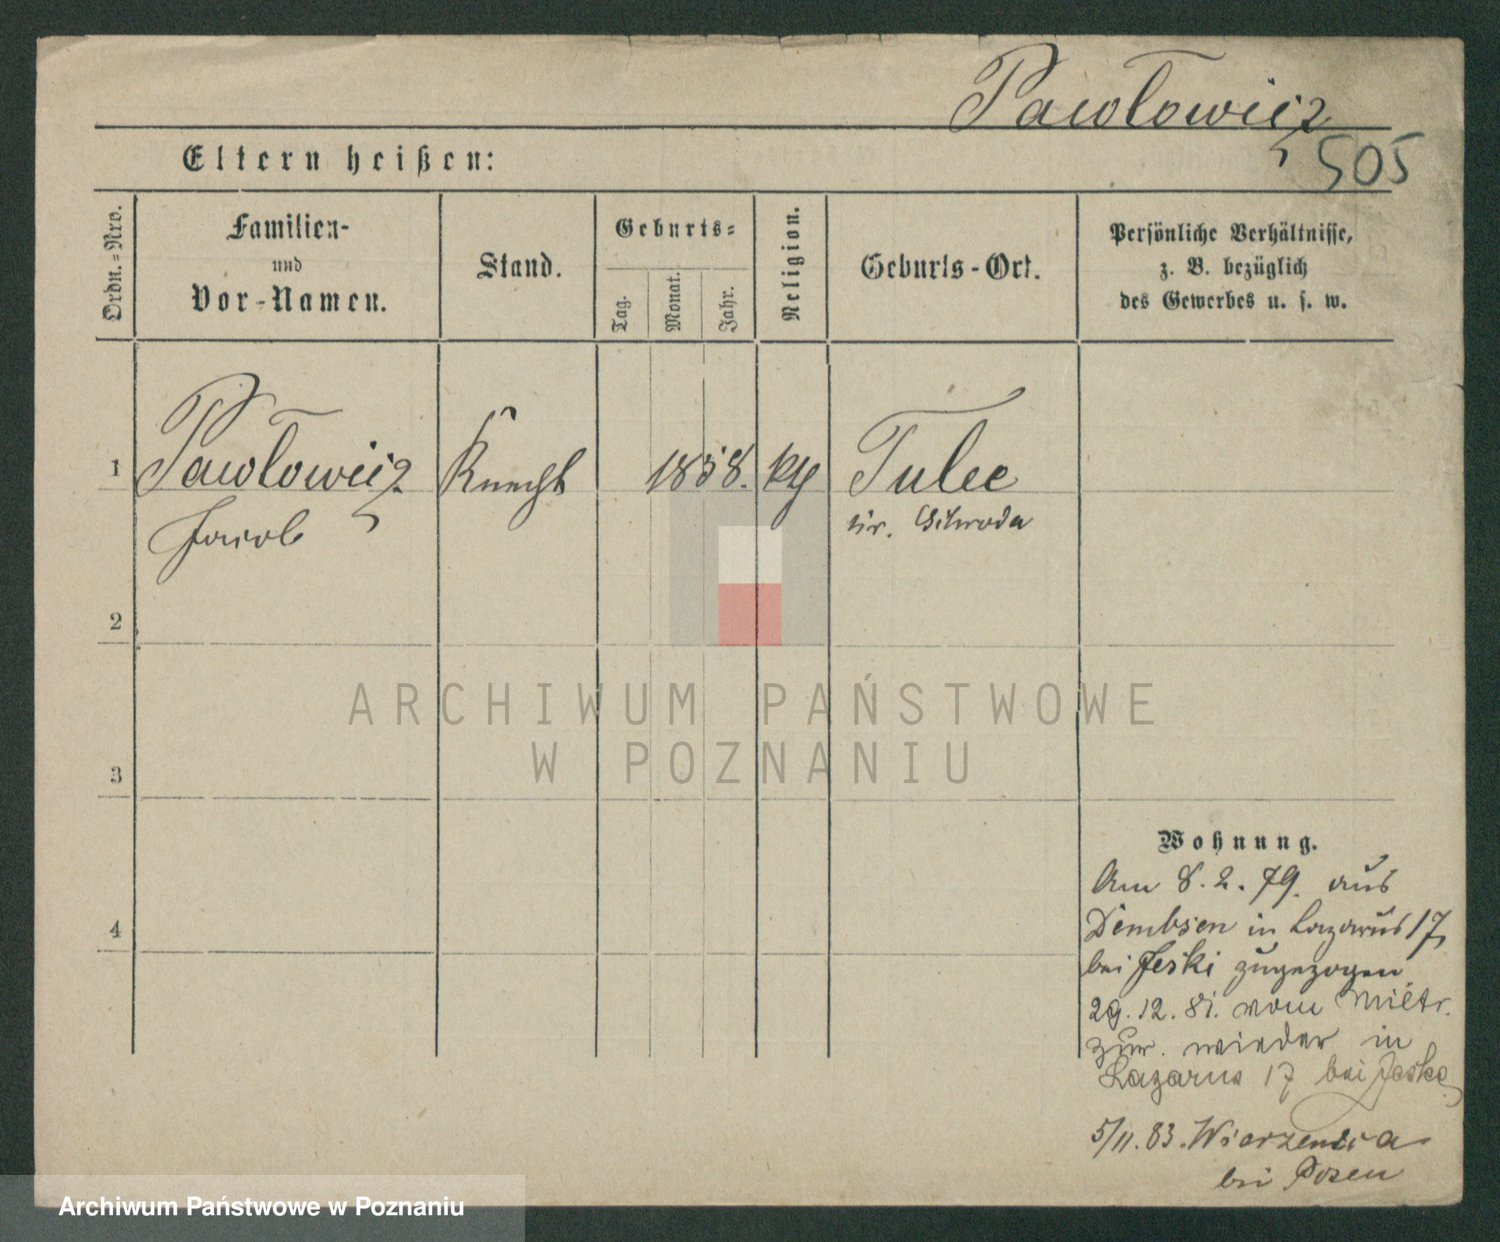 Pawlowicz
505
Eltern heißen:
Ordn.-Nro.
Familien-
und
Vor-Namen.
Stand.
Geburts-
Tag.
Monat.
Jahr.
Religion.
Geburts-Ort.
Persönliche Verhältnisse,
z. B. bezüglich
des Gewerbes u. s. w.
1 Pawlowicz Knecht 1858. kth Tulce
Jacob Kr. Schroda
2
ARCHIWUM PAŃSTWOWE
W POZNANIU
3
Wohnung.
Am 8. 2. 79. aus
4
Dembsen in Lazarus 17
bei Jeski zugezogen
29. 12. 81. vom Militr.
zur. wieder in
Lazarus 17 bei Jeske
5/11. 83. Wierzenica
bei Posen
Archiwum Państwowe w Poznaniu